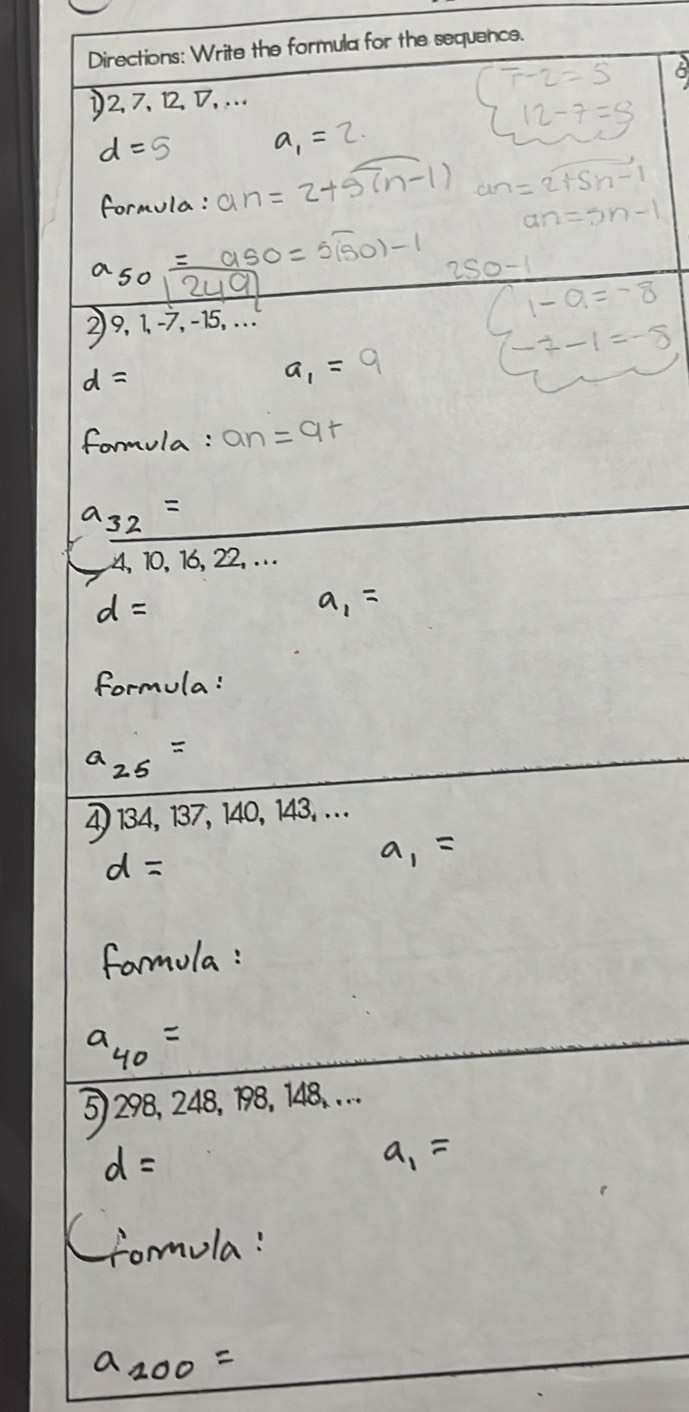 Directions: Write the formula for the sequence.
1) 2, 7, 12, 17, ...
7-2=5
12-7=5
d = 5 a₁ = 2.
formula: an = 2+5(n-1) an=2+5n-1
an=5n-1
a₅₀ = a50 = 5(50)-1
249 250-1
2) 9, 1, -7, -15, ...
1-9=-8
-7-1=-8
d = a₁ = 9
formula: an = 9+
a₃₂ =
4, 10, 16, 22, ...
d = a₁ =
formula:
a₂₅ =
4) 134, 137, 140, 143, ...
d = a₁ =
formula:
a₄₀ =
5) 298, 248, 198, 148, ...
d = a₁ =
formula:
a₂₀₀ =